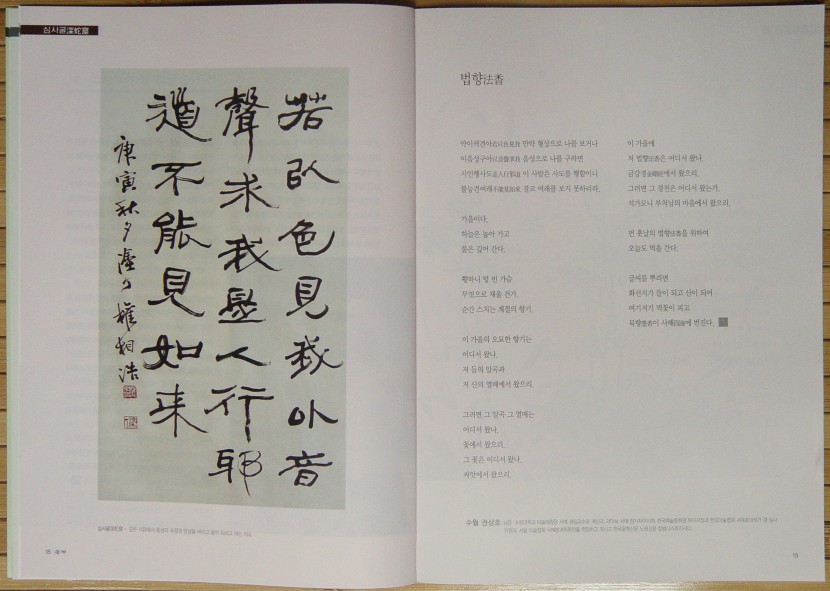 심사굴深蛇窟
若以色見我以音
聲求我是人行邪
道不能見如来
庚寅秋夕 權相浩
법향法香
약이색견아若以色見我 만약 형상으로 나를 보거나
이음성구아以音聲求我 음성으로 나를 구하면
시인행사도是人行邪道 이 사람은 사도를 행함이니
불능견여래不能見如來 결코 여래를 보지 못하리라.
가을이다.
하늘은 높아 가고
물은 깊어 간다.
휑하니 텅 빈 가슴
무엇으로 채울 건가.
순간 스치는 계절의 향기.
이 가을의 오묘한 향기는
어디서 왔나.
저 들의 알곡과
저 산의 열매에서 왔으리.
그러면 그 알곡 그 열매는
어디서 왔나.
꽃에서 왔으리.
그 꽃은 어디서 왔나.
씨앗에서 왔으리.
이 가을에
저 법향法香은 어디서 왔나.
금강경金剛經에서 왔으리.
그러면 그 경전은 어디서 왔는가.
석가모니 부처님의 마음에서 왔으리.
먼 훗날의 법향法香을 위하여
오늘도 먹을 간다.
글씨를 뿌리면
화선지가 들이 되고 산이 되어
여기저기 먹꽃이 피고
묵향墨香이 사해四海에 번진다.
수월 권상호
18
19